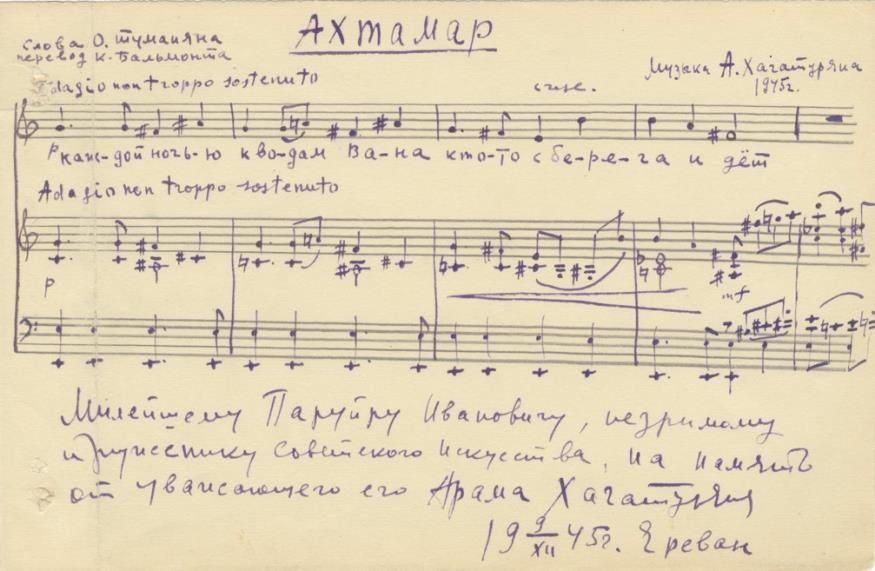 Ахтамар
Слова О. Туманяна
перевод К. Бальмонта
Музыка А. Хачатуряна
1945г.
Adagio non troppo sostenuto
cresc.
P каж-дой ночь-ю к во-дам Ва-на кто-то с бе-ре-га и дёт
Adagio non troppo sostenuto
p
mf
Милейшему Паруйру Ивановичу, незримому
труженику советского искусства, на память
от уважающего его Арама Хачатуряна
19 9/XII 45г. Ереван